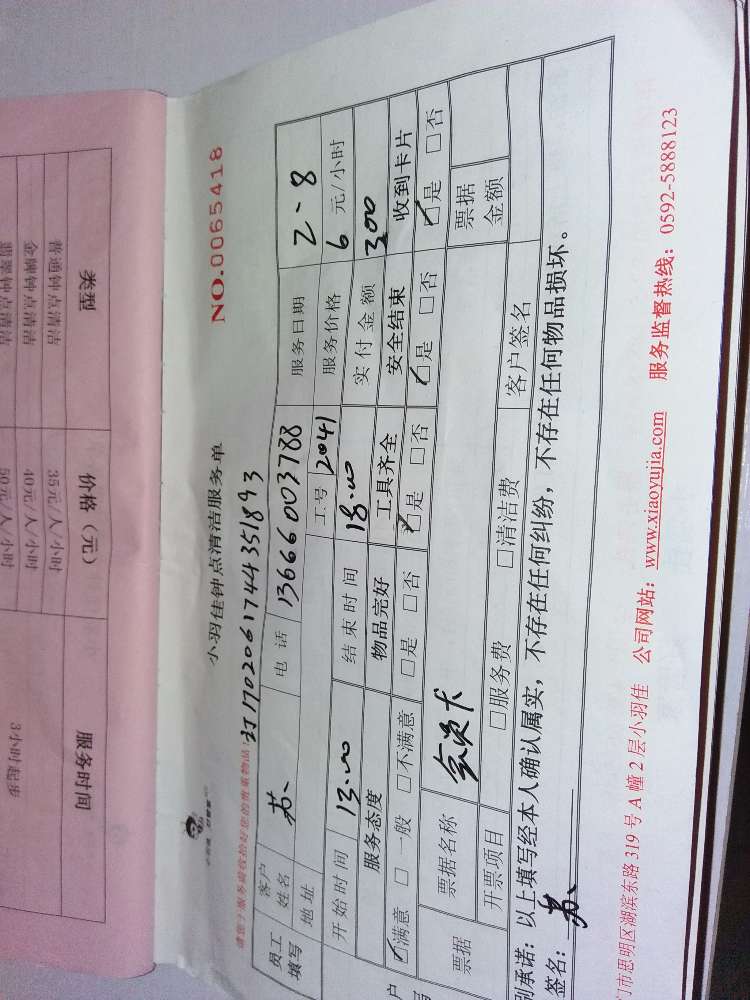 类型 价格（元） 服务时间
普通钟点清洁 35元/人/小时
金牌钟点清洁 40元/人/小时 3小时起步
翡翠钟点清洁 50元/人/小时
小羽佳钟点清洁服务单 NO.0065418
请您于服务前收拾好您的贵重物品!
订1702061744351893
员工填写 客户姓名 苏、 电话 13666003788 服务日期 2、8
地址 工号 2041 服务价格 6 元/小时
开始时间 13.00 结束时间 18.00 实付金额 300
服务态度 物品完好 工具齐全 安全结束 收到卡片
☑满意 □一般 □不满意 □是 □否 ☑是 □否 ☑是 □否 ☑是 □否
票据 票据名称 会员卡 票据金额
开票项目 □服务费 □清洁费 客户签名
别承诺：以上填写经本人确认属实，不存在任何纠纷，不存在任何物品损坏。
签名：苏、
门市思明区湖滨东路319号A幢2层小羽佳 公司网站：www.xiaoyujia.com 服务监督热线：0592-5888123